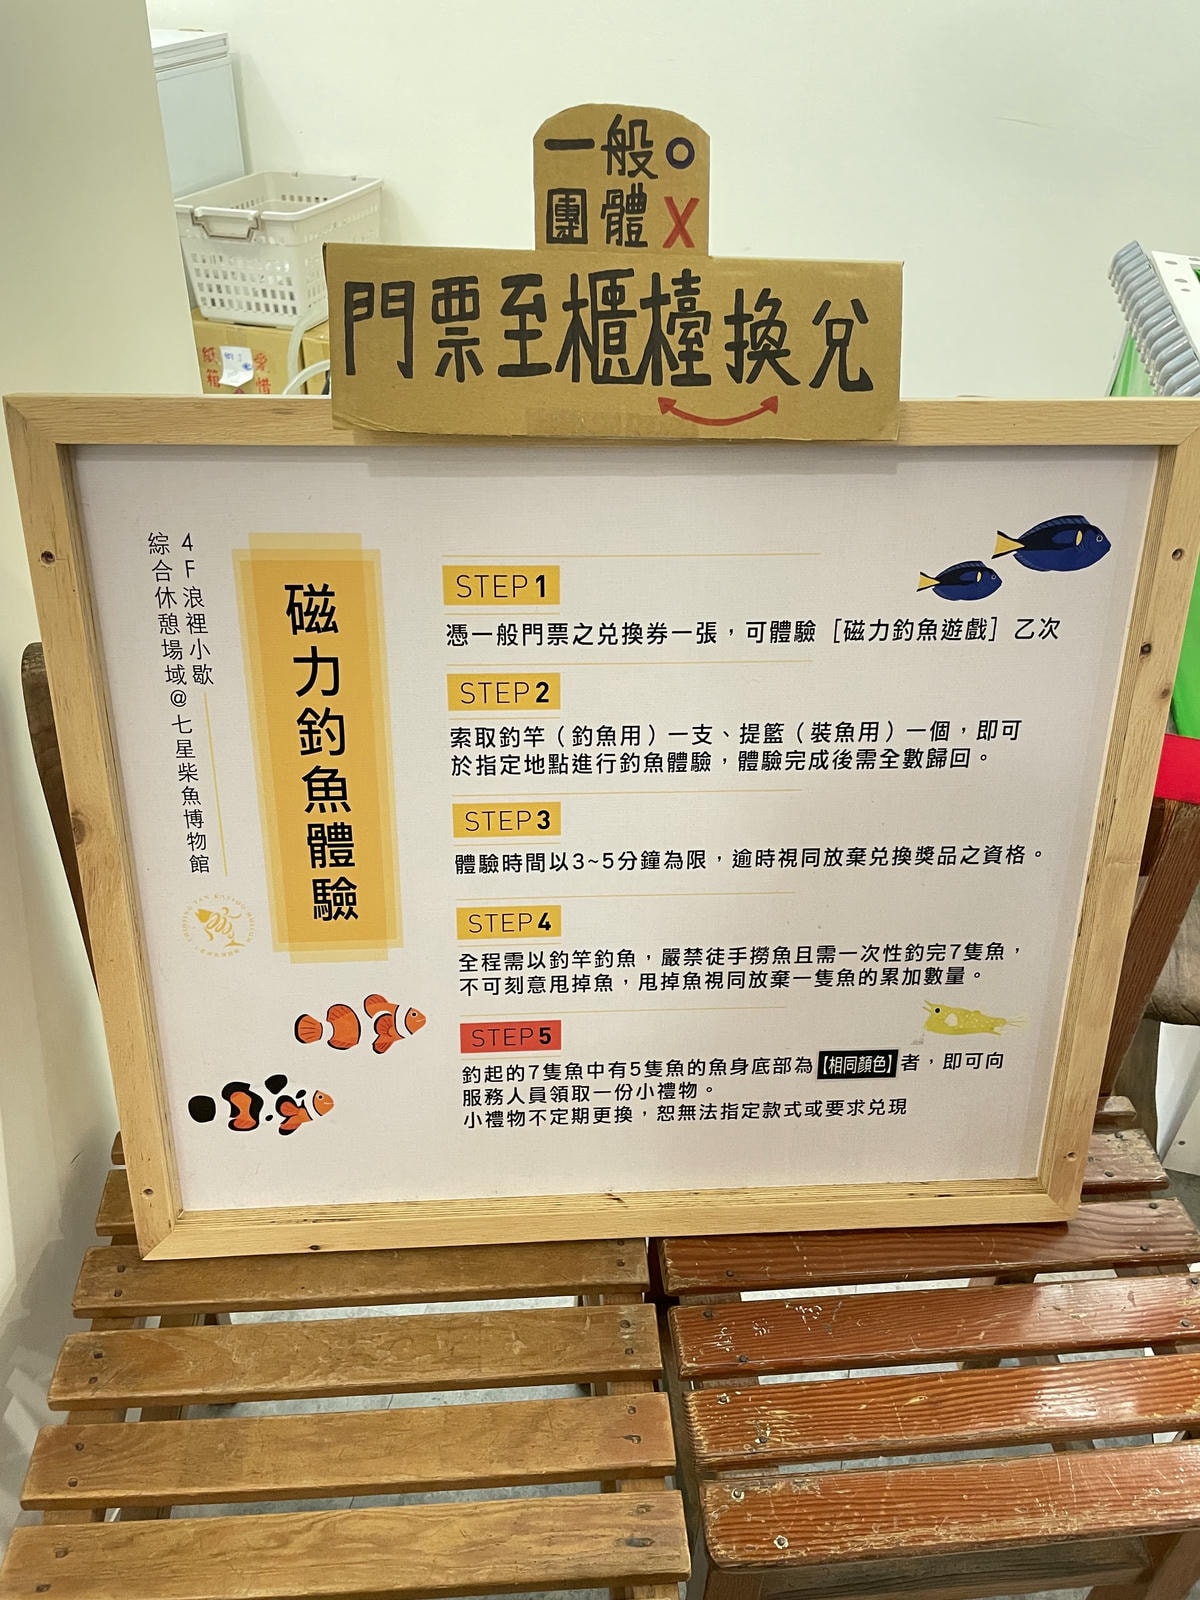 一般O
團體X
門票至櫃檯換兌
紙箱
愛惜
4F浪裡小歇
綜合休憩場域@七星柴魚博物館
磁力釣魚體驗
STEP1
憑一般門票之兌換券一張，可體驗［磁力釣魚遊戲］乙次
STEP2
索取釣竿（釣魚用）一支、提籃（裝魚用）一個，即可
於指定地點進行釣魚體驗，體驗完成後需全數歸回。
STEP3
體驗時間以3~5分鐘為限，逾時視同放棄兌換獎品之資格。
STEP4
全程需以釣竿釣魚，嚴禁徒手撈魚且需一次性釣完7隻魚，
不可刻意甩掉魚，甩掉魚視同放棄一隻魚的累加數量。
STEP5
釣起的7隻魚中有5隻魚的魚身底部為【相同顏色】者，即可向
服務人員領取一份小禮物。
小禮物不定期更換，恕無法指定款式或要求兌現